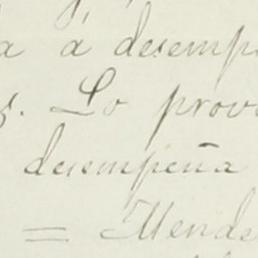 a á desempe
s. Lo provo
desempeña
= Mende